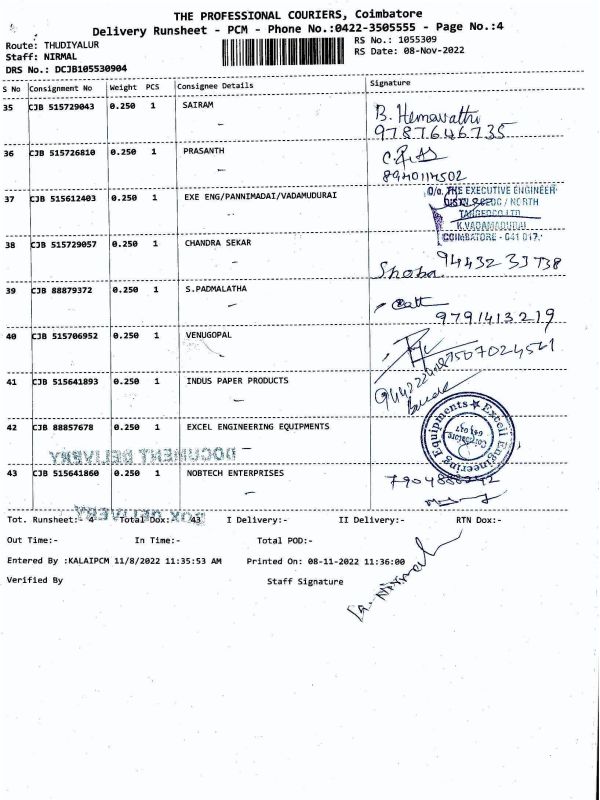 THE PROFESSIONAL COURIERS, Coimbatore
Delivery Runsheet - PCM - Phone No.:0422-3505555 - Page No.:4
Route: THUDIYALUR
RS No.: 1055309
Staff: NIRMAL
RS Date: 08-Nov-2022
DRS No.: DCJB105530904
S No Consignment No Weight PCS Consignee Details Signature
35 CJB 515729043 0.250 1 SAIRAM
B. Hemavathi
9787646735
36 CJB 515726810 0.250 1 PRASANTH
8940114502
37 CJB 515612403 0.250 1 EXE ENG/PANNIMADAI/VADAMUDURAI
O/o. THE EXECUTIVE ENGINEER
/ NORTH
TANGEDCO LTD
K.VADAMADURAI
COIMBATORE - 641 017.
38 CJB 515729057 0.250 1 CHANDRA SEKAR
Shoba 9443233738
39 CJB 88879372 0.250 1 S.PADMALATHA
9791413219
40 CJB 515706952 0.250 1 VENUGOPAL
7507024561
41 CJB 515641893 0.250 1 INDUS PAPER PRODUCTS
42 CJB 88857678 0.250 1 EXCEL ENGINEERING EQUIPMENTS
Excell Engineering Equipments
Coimbatore
641 017
DOCUMENT DELIVERY
43 CJB 515641860 0.250 1 NOBTECH ENTERPRISES
7904888242
BOX DELIVERY
Tot. Runsheet:- 4 Total Dox: 43 I Delivery:- II Delivery:- RTN Dox:-
Out Time:- In Time:- Total POD:-
Entered By :KALAIPCM 11/8/2022 11:35:53 AM Printed On: 08-11-2022 11:36:00
Verified By Staff Signature
Nirmal